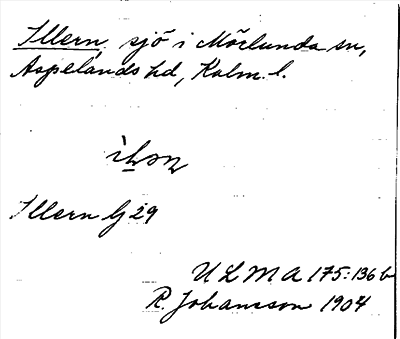 Illern sjö i Mörlunda sn,
Aspelands hd, Kalm. l.
Illern G 29
ULMA 175:136 b
R. Johansson 1904